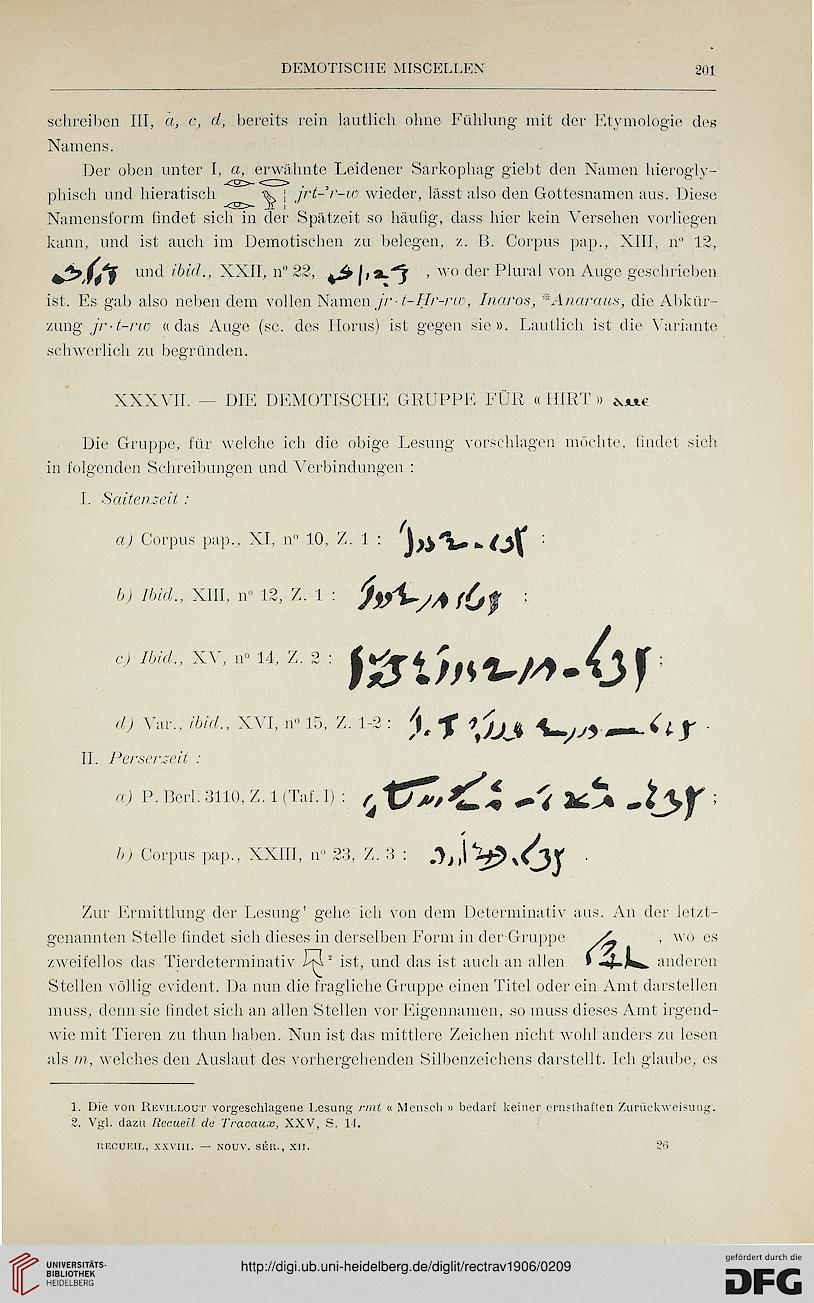 DEMOTISCHE MISCELLEN 201
schreiben III, a, c, d, bereits rein lautlich ohne Fühlung mit der Etymologie des
Namens.
Der oben unter I, a, erwähnte Leidener Sarkophag giebt den Namen hierogly-
phisch und hieratisch jrt-ʾr-w wieder, lässt also den Gottesnamen aus. Diese
Namensform findet sich in der Spätzeit so häufig, dass hier kein Versehen vorliegen
kann, und ist auch im Demotischen zu belegen, z. B. Corpus pap., XIII, nº 12,
und ibid., XXII, nº 22, , wo der Plural von Auge geschrieben
ist. Es gab also neben dem vollen Namen jr·t-Ḥr-rw, Inaros, *Anaraus, die Abkür-
zung jr·t-rw « das Auge (sc. des Horus) ist gegen sie ». Lautlich ist die Variante
schwerlich zu begründen.
XXXVII. — DIE DEMOTISCHE GRUPPE FÜR « HIRT » ⲁⲙⲉ
Die Gruppe, für welche ich die obige Lesung vorschlagen möchte, findet sich
in folgenden Schreibungen und Verbindungen :
I. Saitenzeit :
a) Corpus pap., XI, nº 10, Z. 1 : :
b) Ibid., XIII, nº 12, Z. 1 : ;
c) Ibid., XV, nº 14, Z. 2 : ;
d) Var., ibid., XVI, nº 15, Z. 1-2 : .
II. Perserzeit :
a) P. Berl. 3110, Z. 1 (Taf. I) : ;
b) Corpus pap., XXIII, nº 23, Z. 3 : .
Zur Ermittlung der Lesung¹ gehe ich von dem Determinativ aus. An der letzt-
genannten Stelle findet sich dieses in derselben Form in der Gruppe , wo es
zweifellos das Tierdeterminativ ² ist, und das ist auch an allen anderen
Stellen völlig evident. Da nun die fragliche Gruppe einen Titel oder ein Amt darstellen
muss, denn sie findet sich an allen Stellen vor Eigennamen, so muss dieses Amt irgend-
wie mit Tieren zu thun haben. Nun ist das mittlere Zeichen nicht wohl anders zu lesen
als m, welches den Auslaut des vorhergehenden Silbenzeichens darstellt. Ich glaube, es
1. Die von REVILLOUT vorgeschlagene Lesung rmt « Mensch » bedarf keiner ernsthaften Zurückweisung.
2. Vgl. dazu Recueil de Travaux, XXV, S. 14.
RECUEIL, XXVIII. — NOUV. SÉR., XII. 26
UNIVERSITÄTS-
BIBLIOTHEK
HEIDELBERG
http://digi.ub.uni-heidelberg.de/diglit/rectrav1906/0209
gefördert durch die
DFG